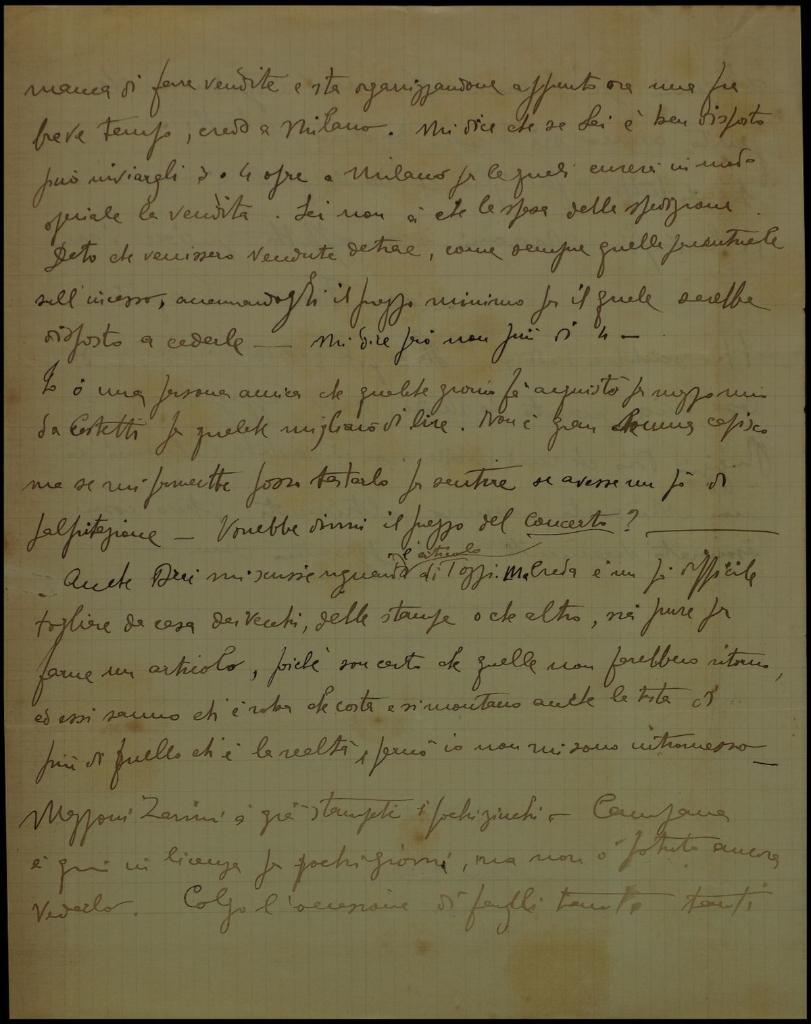 manca di fare vendite e sta organizzandone appunto ora una fra
breve tempo, credo a Milano. Mi dice che se Lei è ben disposto
può inviargli 3 o 4 opre a Milano per le quali curerà in modo
speciale la vendita. Lei non à che le spese della spedizione.
Dato che venissero vendute detrae, come sempre quelle percentuale
sull'incasso, accennandogli il prezzo minimo per il quale sarebbe
disposto a cederle — mi dice però non più di 4 —
Io ò una persona amica che qualche giorno fa acquistò per mezzo mio
da Costetti per qualche migliaio di lire. Non è gran somma capisco
ma se mi permette posso tastarlo per sentire se avesse un pò di
palpitazione — Vorrebbe dirmi il prezzo del concerto?
Anche mi scrisse riguardo articolo di Tozzi. Ma creda è un pò difficile
togliere da casa dei vecchi, delle stampe o che altro, sia pure per
farne un articolo, poichè son certo che quelle non farebbero ritorno,
ed essi sanno ch'è roba che costa e si montano anche la testa di
più di quello ch'è la realtà, perciò io non mi sono intromesso —
Mazzoni Zarini à già stampati i pochi zinchi — Campana
è qui in licenza per pochi giorni, ma non ò potuto ancora
vederlo. Colgo l'occasione di fargli tanti tanti